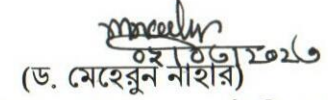 ০২|০৩|২০২৩
(ড. মেহেরুন নাহার)